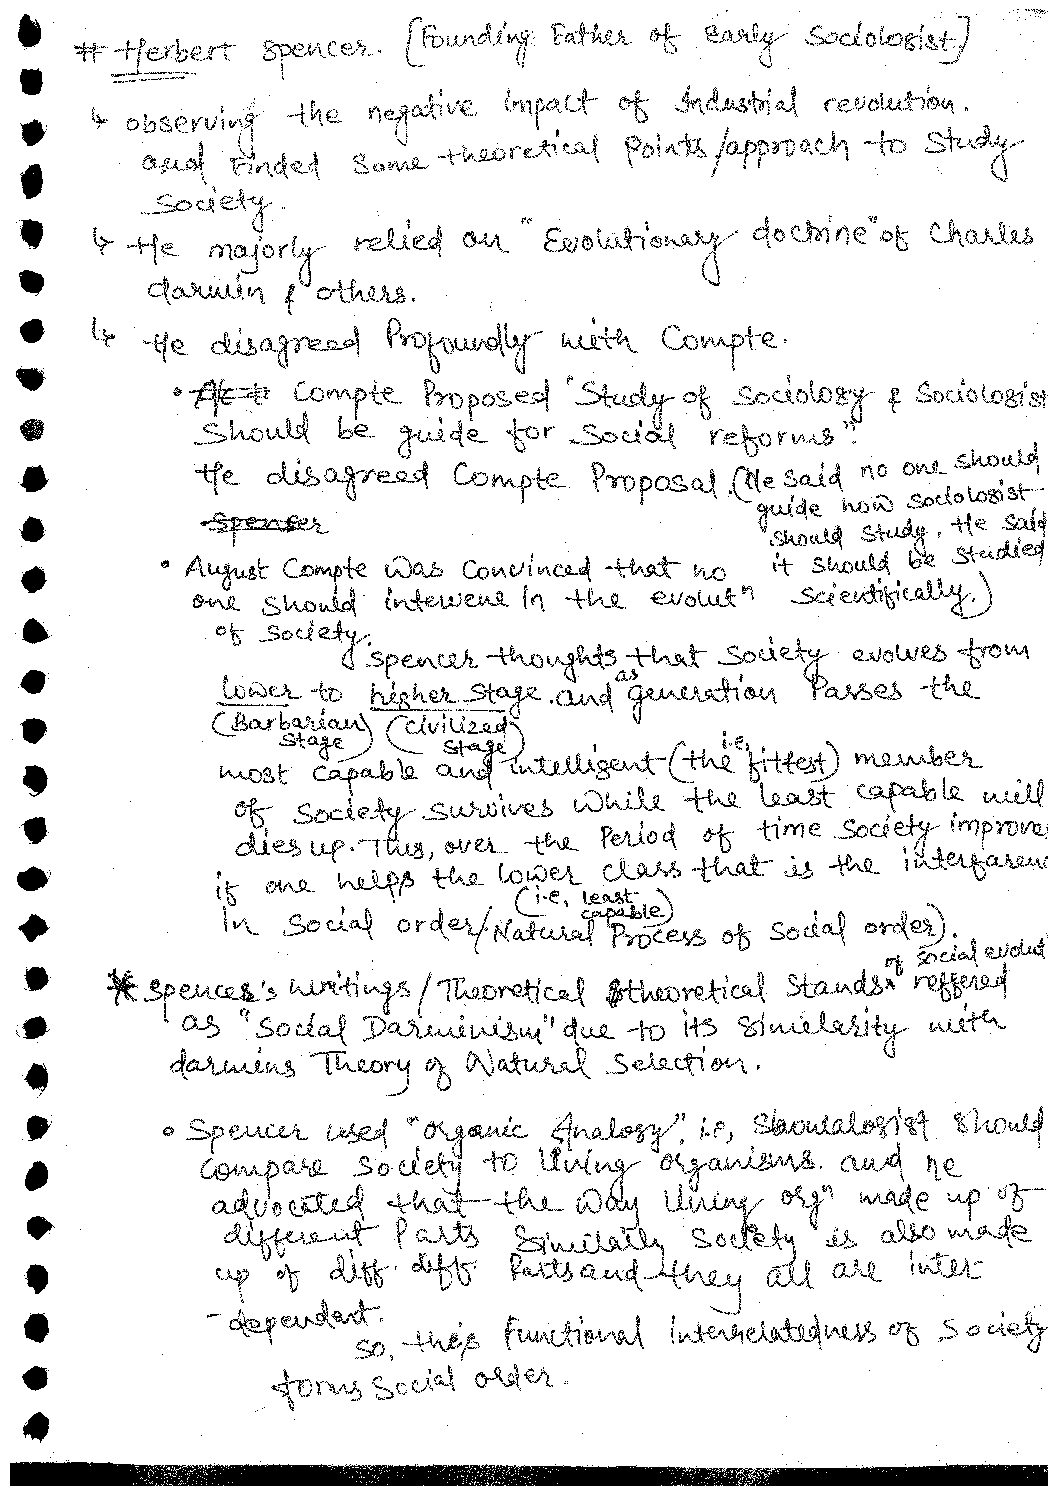 # Herbert Spencer. [Founding Father of Early Sociologist]
↳ observing the negative impact of Industrial revolution.
and Finded Some theoretical Points/approach to Study
Society.
↳ He majorly relied on "Evolutionary doctrine" of Charles
darwin & others.
↳ He disagreed Profoundly with Compte.
• Compte Proposed "Study of Sociology & Sociologist
Should be guide for Social reforms".
He disagreed Compte Proposal. (He said no one should
guide how sociologist
should study, He said
it should be studied
scientifically.)
Spencer
• August Compte was convinced that no
one should intervene in the evolutⁿ
of society.
Spencer thoughts that Society evolves from
lower to higher stage. and as generation Passes the
(Barbarian Stage) (Civilized Stage)
most capable and intelligent (the i.e, fittest) member
of Society survives while the least capable will
dies up. Thus, over the Period of time Society improve
if one helps the lower class that is the interfarenc
(i.e, least capable)
in Social order/Natural Process of Social order).
* Spencer's writings / Theoretical theoretical Stands of social evolut reffered
as "Social Darwinism" due to its similarity with
darwins Theory of Natural Selection.
• Spencer used "organic Analogy", i.e, should
compare society to living organisms. and he
advocated that the way living orgⁿ made up of
different Parts Similarly Society is also made
up of diff. diff. Parts and they all are inter
-dependant.
So, this Functional Interrelatedness of Society
forms Social order.